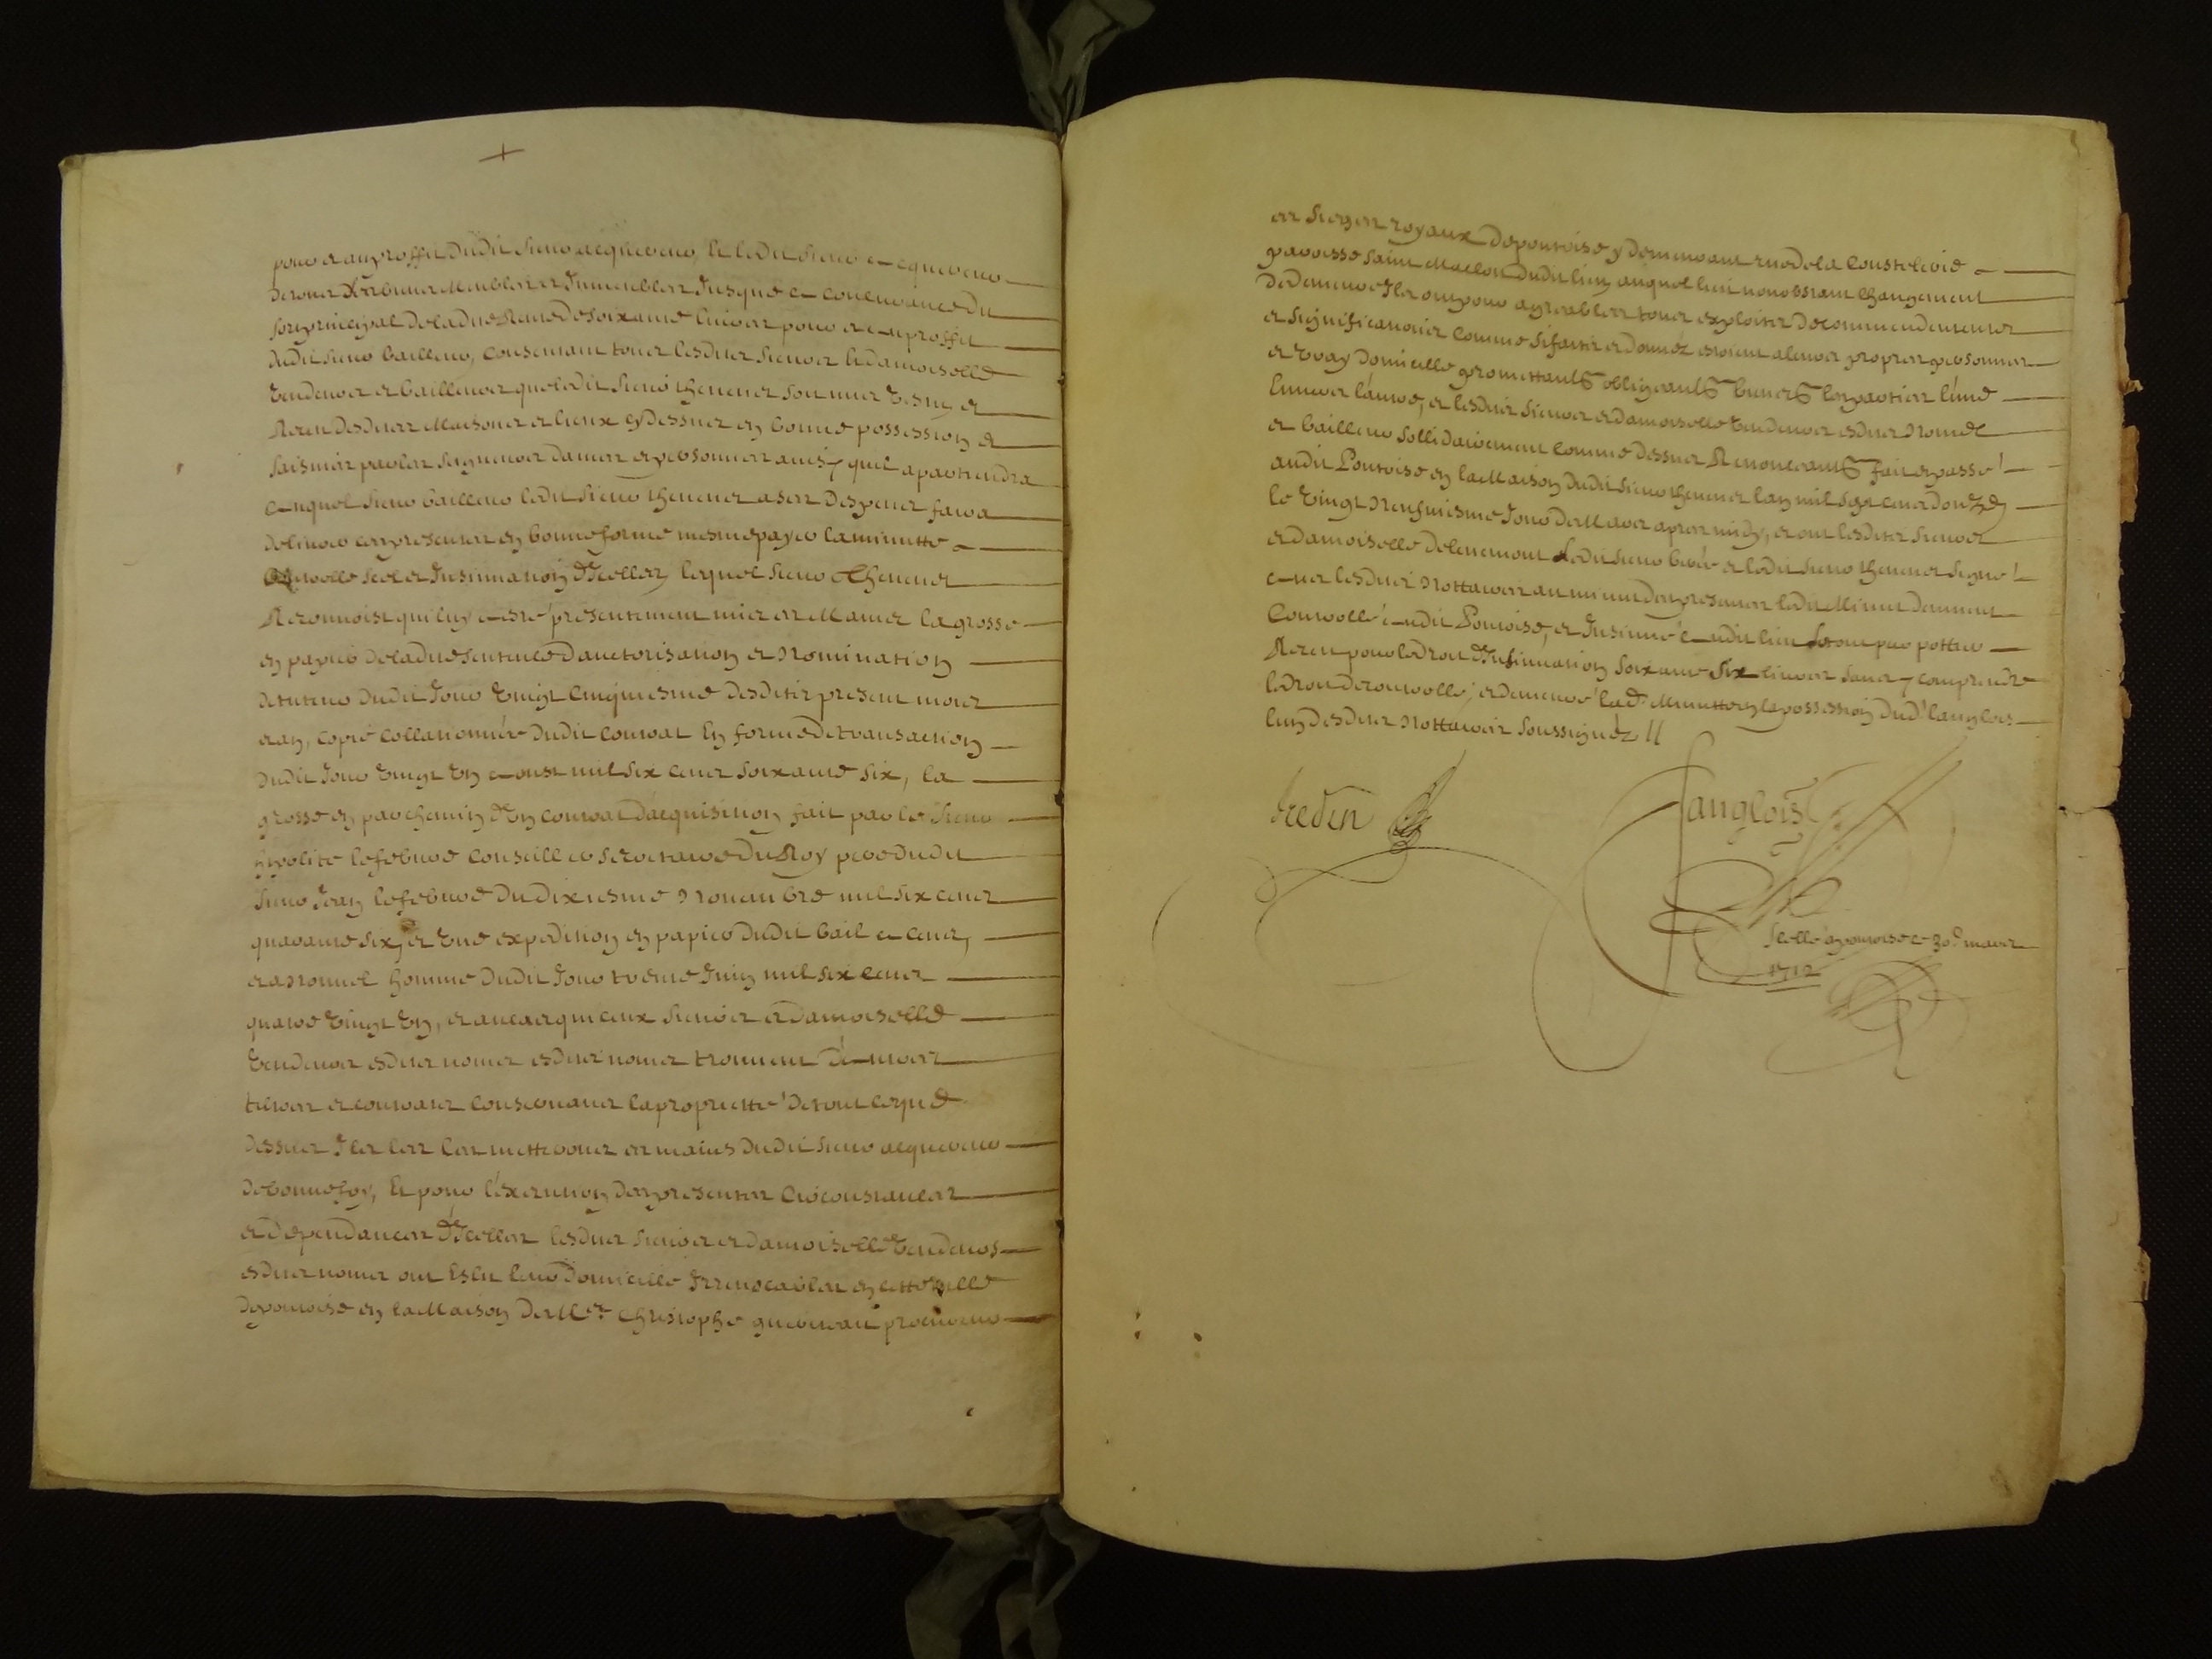 pour et au proffit dudit sieur acquereur, Et ledit sieur acquereur
de tous ses biens Meubles et Immeubles Jusque a concurrance du
sort principal de ladite Rente de soixante livres pour et au proffit
dudit sieur bailleur, consentant tous lesdites sieurs et damoiselle
vendeurs et bailleurs que ledit sieur thevenet soit mis vestu et
Receu desdites Maisons et lieux cy dessus en bonne possession et
saisinne par les seigneurs dames et personnes ainsy quil apartiendra
auquel sieur bailleur ledit sieur thevenet a ses despens fera
delivrer ces presentes en bonne forme mesme payer la minutte
controlle scel et Insinuation d'Icelles, lequel sieur thevenet
Reconnoist qui luy a esté presentement mis es Mains la grosse
en papier de ladite sentence d'auctorisation et Nomination
de tuteur dudit Jour vingt cinquiesme desdits present mois
et an, copie collationnée dudit contrat En forme de transaction
dudit Jour vingt un aoust mil six cens soixante six, la
grosse en parchemin d'un contrat d'acquisition fait par le sieur
hypolite lefebvre conseiller secretaire du Roy pere dudit
sieur Jean lefebvre du dixiesme Novembre mil six cens
quarante six, et une expedition en papier dudit bail a cens
et a Nommel homme dudit Jour treme Juin mil six cens
quatre vingt un, et au cas que ceux sieurs et damoiselle
vendeurs esdites noms esdites noms trouvent d'autres
tiltres et contrats conservans la propriette de tout ce que
dessus Ils les les mettrons es mains dudit sieur acquereur
de bonne foy, Et pour l'execution des presentes circonstances
et dependances d'Icelles lesdites sieurs et damoiselle vendeurs
esdites noms ont Eslu leur domicille Irrevocables en cette ville
de pontoise en la Maison de Me Christophe procureur
es sieges royaux de pontoise y demeurant rue de la Coustellerie
paroisse saint Maclou dudit lieu, auquel lieu nonobstant changement
de demeure Ils ont pour agreables tous exploits de commendements
et significations comme si faits et donnez estoient a leurs propres personnes
et vray domicille promettants obligeants biens les parties l'une
Envers l'autre, et lesdits sieurs et damoiselle vendeurs esdites Noms
et bailleur sollidairement comme dessus Renonceants fait et passé
audit Pontoise en la Maison dudit sieur thevenet l'an mil sept cens douze
le vingt Neufviesme Jour de Mars apres midy, et ont lesdites sieurs
et damoiselle ledit sieur et ledit sieur thevenet signé
avec lesdits Nottaires au minut des presentes ledit Minut deument
Controllé audit Pontoise, et Insinué audit lieu le tout par pottier
Receu pour le droit d'Insinuation soixante six livres sans y comprendre
le droit de controlle, et demeure lad. Minutte en la possession dud. langlois
l'un desdites Nottaires soussignez //
fredin
Langlois
Scellé a pontoise ce 30e mars
1712